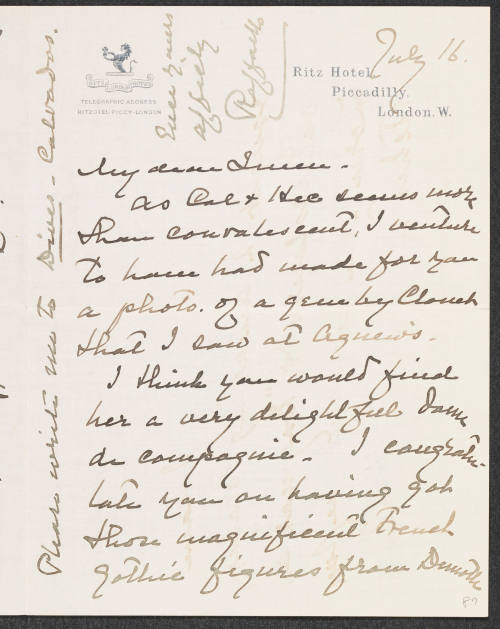 July 16.
RITZ HOTEL
TELEGRAPHIC ADDRESS
RITZOTEL-PICCY-LONDON
Ritz Hotel,
Piccadilly,
London. W.
My dear
As Cal & Hec seems more
than convalescent, I venture
to have had made for you
a photo. of a gem by Clouet
that I saw at Agnew's.
I think you would find
her a very delightful dame
de compagnie. I congratu-
late you on having got
those magnificent French
Gothic figures from Demotte
87
Please write me to Dives - Calvados.
Ever yours
affectly